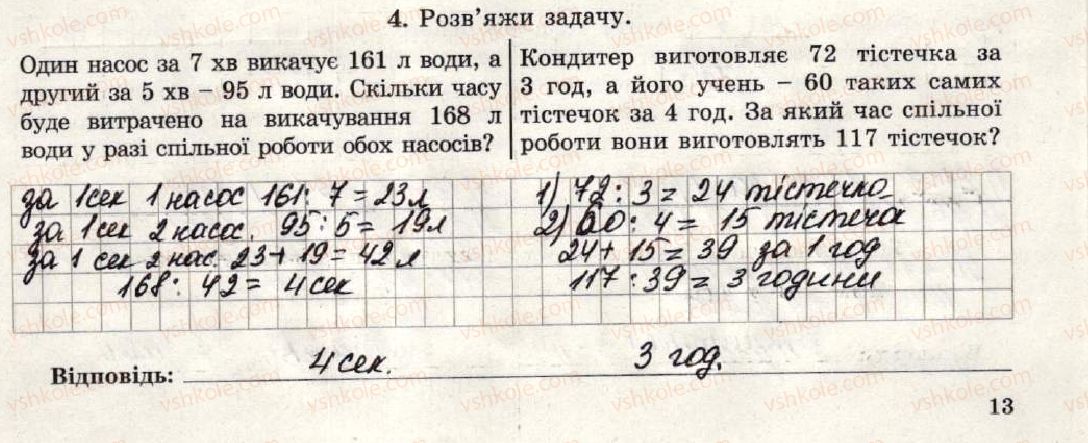 4. Розв'яжи задачу.
Один насос за 7 хв викачує 161 л води, а
другий за 5 хв – 95 л води. Скільки часу
буде витрачено на викачування 168 л
води у разі спільної роботи обох насосів?
Кондитер виготовляє 72 тістечка за
3 год, а його учень – 60 таких самих
тістечок за 4 год. За який час спільної
роботи вони виготовлять 117 тістечок?
за 1 сек 1 насос 161 : 7 = 23 л
за 1 сек 2 насос. 95 : 5 = 19 л
за 1 сек 2 нас. 23 + 19 = 42 л
168 : 42 = 4 сек
1) 72 : 3 = 24 тістечко
2) 60 : 4 = 15 тістеча
24 + 15 = 39 за 1 год
117 : 39 = 3 години
Відповідь: 4 сек. 3 год.
13